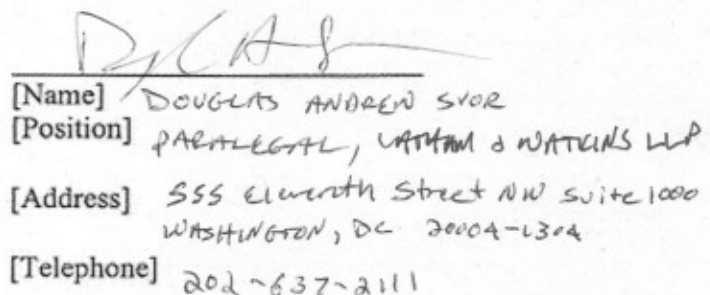 [Name] DOUGLAS ANDREW SVOR
[Position] PARALEGAL, LATHAM & WATKINS LLP
[Address] 555 Eleventh Street NW Suite 1000
WASHINGTON, DC 20004-1304
[Telephone] 202-637-2111